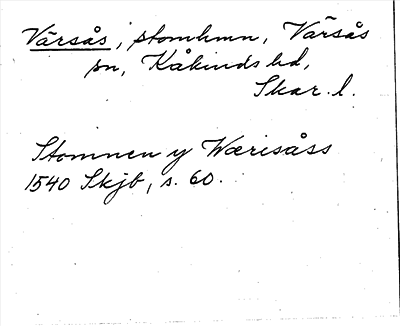 Värsås, stomhmn, Värsås
sn, Kåkinds hd,
Skar. l.
Stomnen y Wærisåss
1540 Skjb, s. 60.